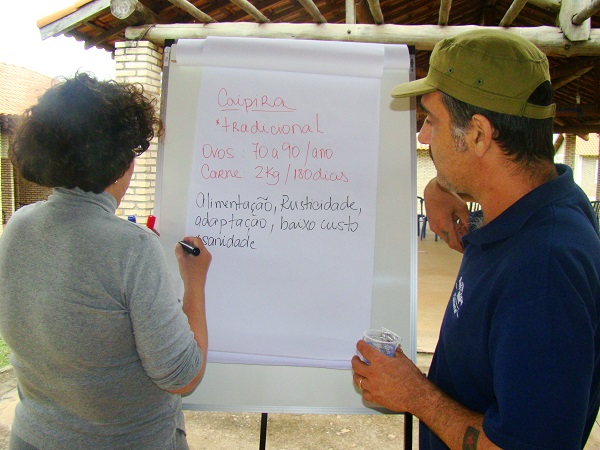 Caipira
*tradicional
Ovos: 70 a 90/ano
Carne 2 Kg/180 dias
Alimentação, Rusticidade,
adaptação, baixo custo
*sanidade